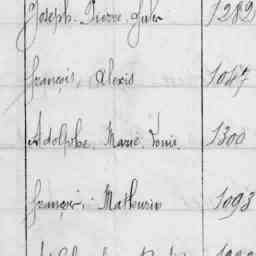 Joseph. Pierre, Jules 1282
françois, Alexis 1047
Adolphe, Marie, Louis. 1300
françois, Mathurin 1093